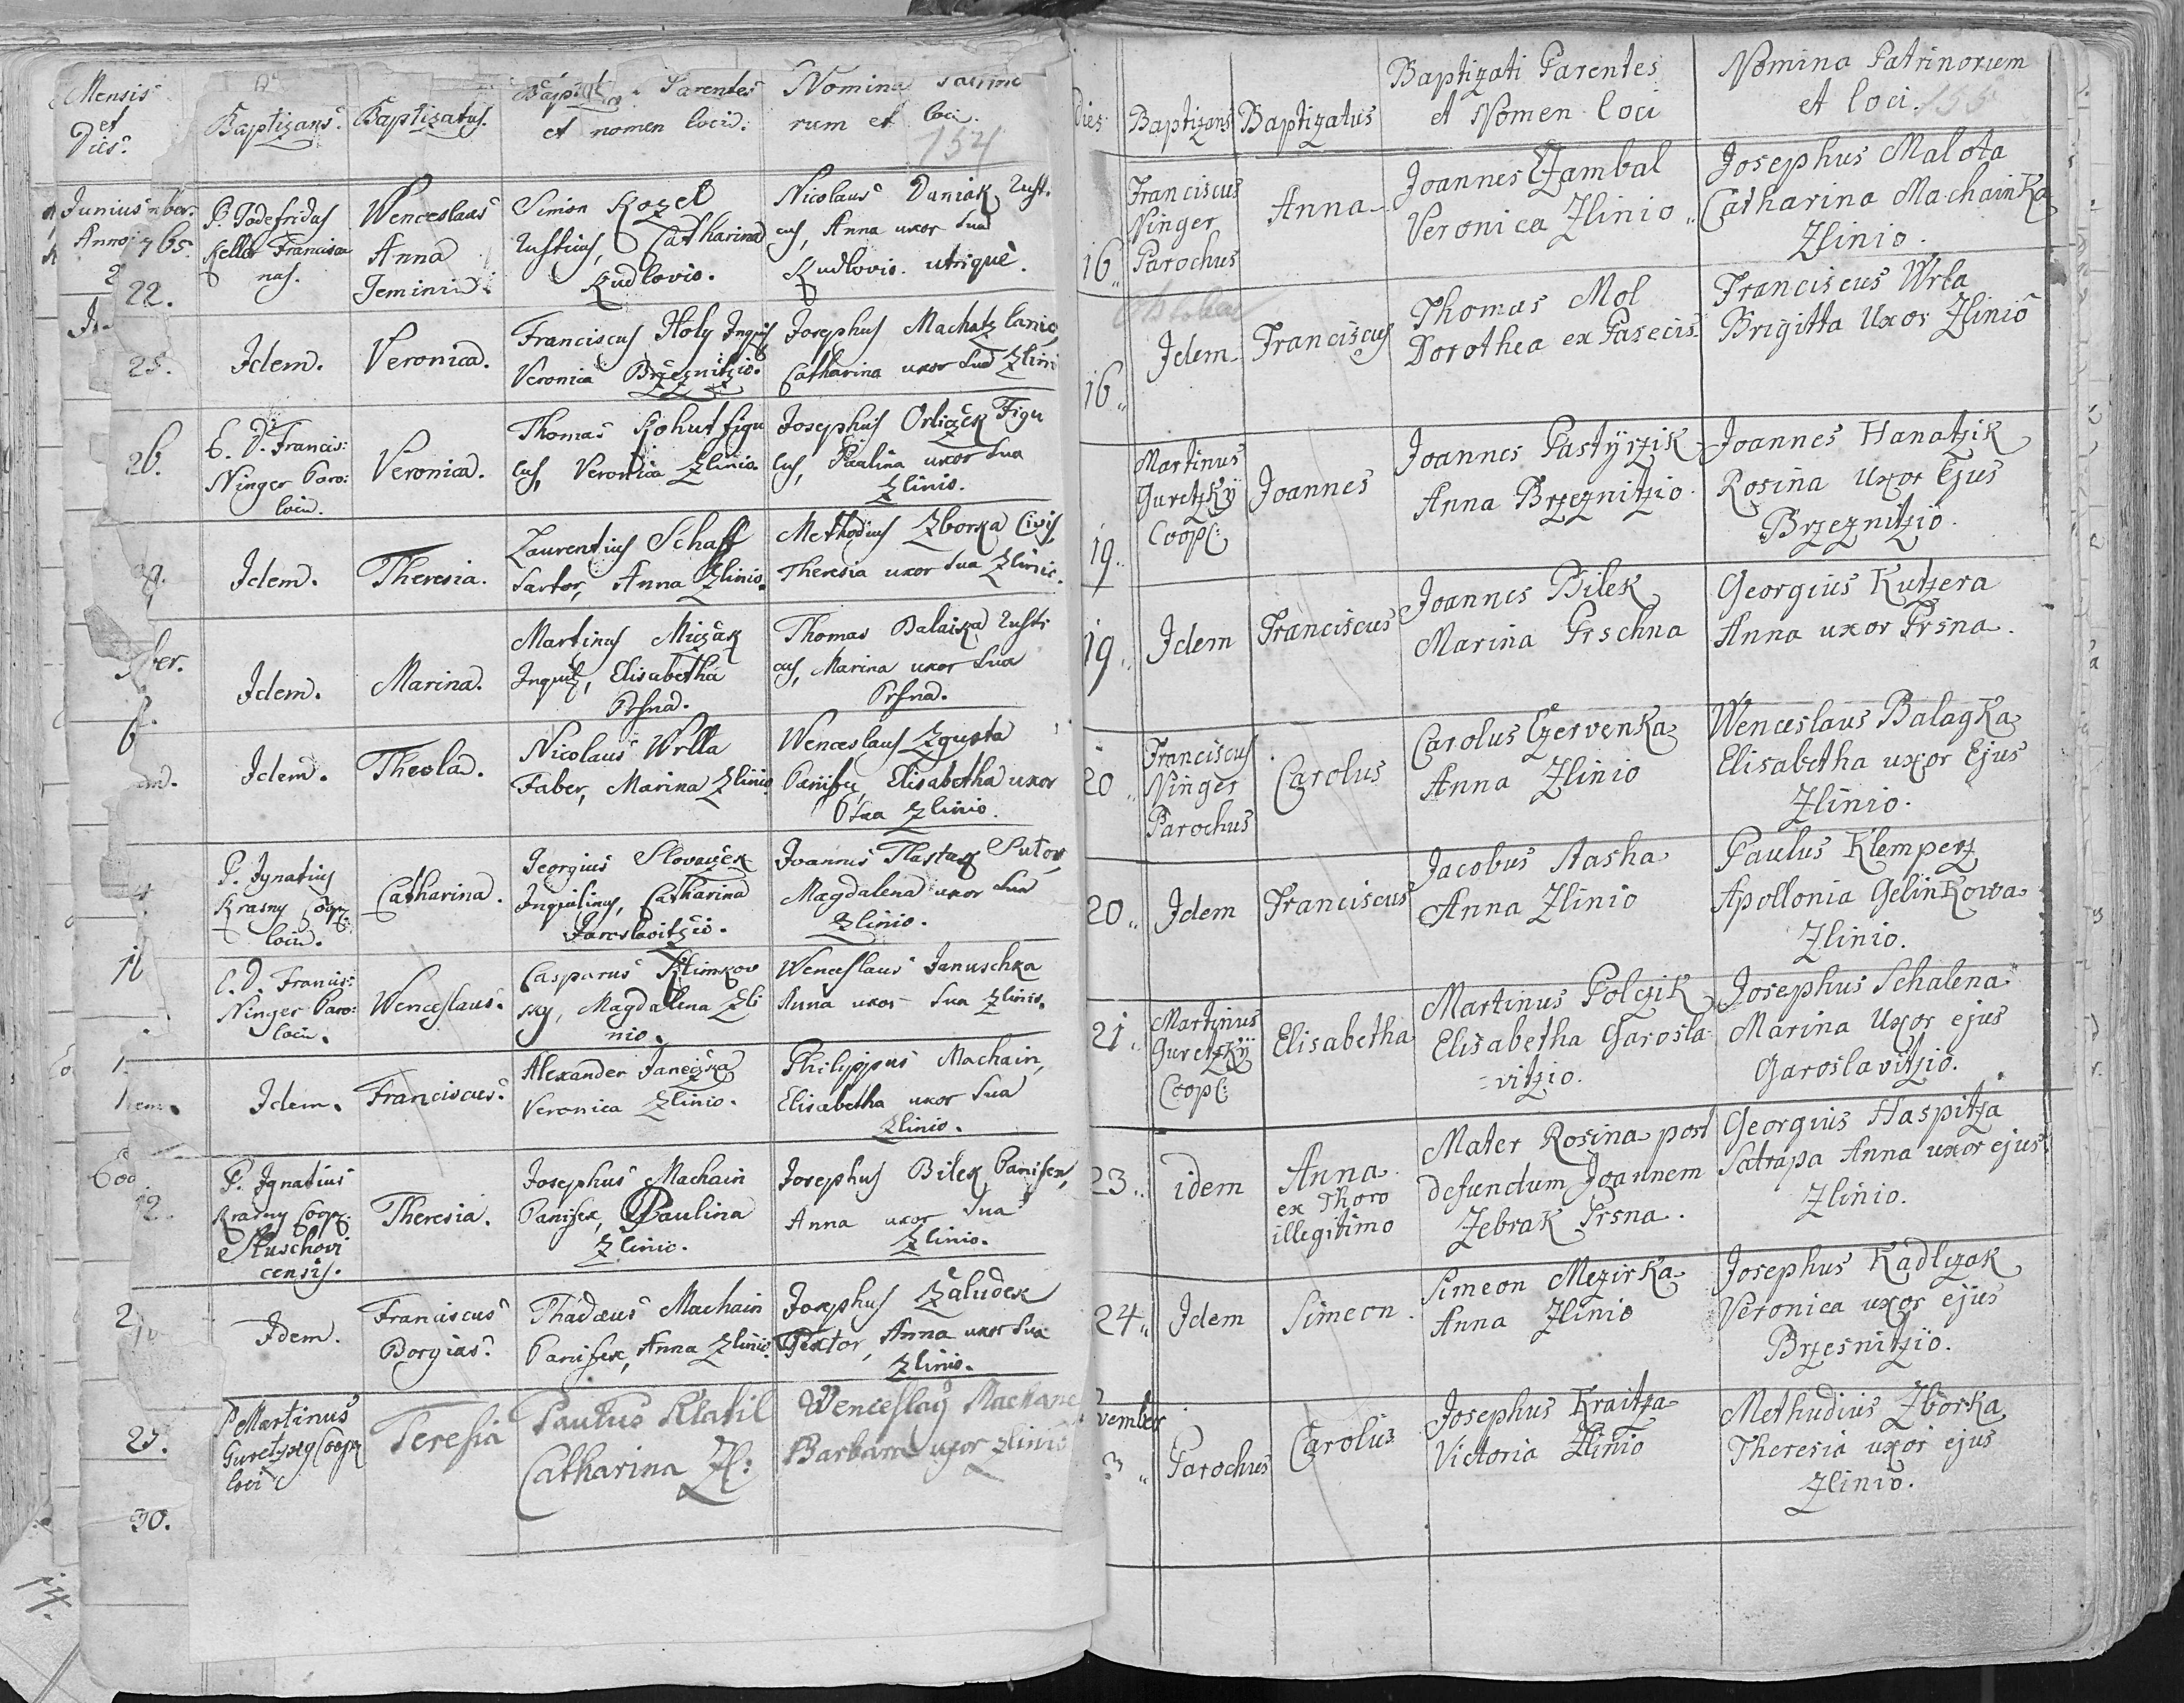 Mensis
et
Dies
Baptizans.
Baptizatus.
Parentes
et nomen loci.
Nomina
rum et loci.
154
Junius
Anno
22.
P. Godefridus
Keller Francisca
nus.
Wenceslaus
Anna
Gemini
Simon Kozel
rusticus, Catharina
Kudlovio.
Nicolaus Daniak rusti
cus, Anna uxor sua
Kudlovio. utrique.
25.
Idem.
Veronica.
Franciscus Holy
Veronica Brzeznitzio.
Josephus Machatz lanio,
Catharina uxor sua Zlini
26.
Francis:
Ninger Paro:
loci.
Veronica.
Thomas Kohut figu
lus, Veronica Zlinio.
Josephus Orlizek Figu
lus, Paulina uxor sua
Zlinio.
Idem.
Theresia.
Laurentius Schaff
Sartor, Anna Zlinio.
Methodius Zborka Civis,
Theresia uxor sua Zlinio.
ber.
Idem.
Marina.
Martinus Miczak
Inquil, Elisabetha
Prsna.
Thomas Balaika rusti
cus, Marina uxor sua
Prsna.
6.
Idem.
Thecla.
Nicolaus Wrlla
Faber, Marina Zlinio
Wenceslaus Zgusta
Panifex, Elisabetha uxor
sua Zlinio.
P. Ignatius
Krasny Coop:
loci.
Catharina.
Georgius Slovaczek
Inquilinus, Catharina
Jaroslavitzio.
Joannes Tlastak Sutor,
Magdalena uxor sua
Zlinio.
Francis:
Ninger Paro:
loci.
Wenceslaus.
Casparus Klimkov
sky, Magdalena Zli
nio.
Wenceslaus Januschka
Anna uxor sua Zlinio.
Idem.
Franciscus.
Alexander Janeczka
Veronica Zlinio.
Philippus Machain,
Elisabetha uxor sua
Zlinio.
12.
P. Ignatius
Krasny Coop:
Sluschovi
censis.
Theresia.
Josephus Machain
Panifex, Paulina
Zlinio.
Josephus Bilek Panifex,
Anna uxor sua
Zlinio.
Idem.
Franciscus
Borgias.
Thadaeus Machain
Panifex, Anna Zlinio.
Josephus Zaludek
Textor, Anna uxor sua
Zlinio.
25.
P Martinus
Guretzky Coop
loci
Teresia
Paulus Klatil
Catharina Zl:
Wenceslaus
Barbara uxor Zlinio
30.
14.
Dies
Baptizans
Baptizatus
Baptizati Parentes
et Nomen loci
Nomina Patrinorum
et loci. 155
16
Franciscus
Ninger
Parochus
Anna
Joannes Czambal
Veronica Zlinio
Josephus Malota
Catharina Machainka
Zlinio.
October
16
Idem
Franciscus
Thomas Mol
Dorothea ex Pasecis
Franciscus Wrla
Brigitta Uxor Zlinio
19
Martinus
Guretzky
Coop:
Joannes
Joannes Pastyrzik
Anna Brzeznitzio
Joannes Hanatzik
Rosina Uxor Ejus
Brzeznitzio.
19
Idem
Franciscus
Joannes Bilek
Marina Prschna
Georgius Kutzera
Anna uxor Prsna.
20
Franciscus
Ninger
Parochus
Carolus
Carolus Czervenka
Anna Zlinio
Wenceslaus Balagka
Elisabetha uxor Ejus
Zlinio.
20
Idem
Franciscus
Jacobus Stasha
Anna Zlinio
Paulus Klemperz
Apollonia Gelinkowa
Zlinio.
21
Martinus
Guretzky
Coop:
Elisabetha
Martinus Polczik
Elisabetha Garosla-
vitzio.
Josephus Schalena
Marina Uxor ejus
Garoslavitzio.
23
idem
Anna
ex Thoro
illegitimo
Mater Rosina post
defunctum Joannem
Zebrak Prsna.
Georgius Haspitza
Satrapa Anna uxor ejus
Zlinio.
24
Idem
Simeon
Simeon Mezirka
Anna Zlinio
Josephus Kadlczak
Veronica uxor ejus
Brzesnitzio.
vember
3
Parochus
Carolus
Josephus Kraitza
Victoria Zlinio
Methudius Zborka
Theresia uxor ejus
Zlinio.